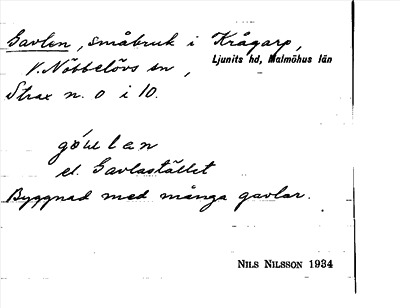 Gavlen, småbruk i Krågarp,
V. Nöbbelövs sn, Ljunits hd, Malmöhus län
Strax n. o i 10.
el. Gavlastället
Byggnad med många gavlar.
NILS NILSSON 1934